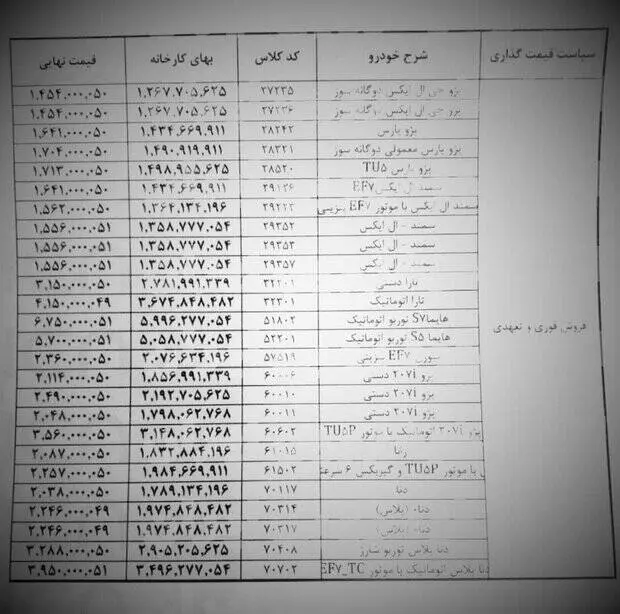 سیاست قیمت گذاری شرح خودرو کد کلاس بهای کارخانه قیمت نهایی
پژو جی ال ایکس دوگانه سوز ۲۷۲۳۵ ۱,۲۶۷,۷۰۵,۶۲۵ ۱,۴۵۴,۰۰۰,۰۵۰
پژو جی ال ایکس دوگانه سوز ۲۷۲۳۶ ۱,۲۶۷,۷۰۵,۶۲۵ ۱,۴۵۴,۰۰۰,۰۵۰
پژو پارس ۲۸۲۴۲ ۱,۴۳۴,۶۶۹,۹۱۱ ۱,۶۴۱,۰۰۰,۰۵۰
پژو پارس معمولی دوگانه سوز ۲۸۳۲۱ ۱,۴۹۰,۹۱۹,۹۱۱ ۱,۷۰۴,۰۰۰,۰۵۰
پژو پارس TU۵ ۲۸۵۲۰ ۱,۴۹۸,۹۵۵,۶۲۵ ۱,۷۱۳,۰۰۰,۰۵۰
سمند ال ایکس EF۷ ۲۹۱۲۶ ۱,۴۳۴,۶۶۹,۹۱۱ ۱,۶۴۱,۰۰۰,۰۵۰
سمند ال ایکس با موتور EF۷ بنزینی ۲۹۲۲۲ ۱,۳۶۴,۱۳۴,۱۹۶ ۱,۵۶۲,۰۰۰,۰۵۰
سمند - ال ایکس ۲۹۳۵۲ ۱,۳۵۸,۷۷۷,۰۵۴ ۱,۵۵۶,۰۰۰,۰۵۱
سمند - ال ایکس ۲۹۳۵۳ ۱,۳۵۸,۷۷۷,۰۵۴ ۱,۵۵۶,۰۰۰,۰۵۱
سمند - ال ایکس ۲۹۳۵۷ ۱,۳۵۸,۷۷۷,۰۵۴ ۱,۵۵۶,۰۰۰,۰۵۱
تارا دستی ۳۲۲۰۱ ۲,۷۸۱,۹۹۱,۳۳۹ ۳,۱۵۰,۰۰۰,۰۵۰
تارا اتوماتیک ۳۲۳۰۱ ۳,۶۷۴,۸۴۸,۴۸۲ ۴,۱۵۰,۰۰۰,۰۴۹
هایما S۷ توربو اتوماتیک ۵۱۸۰۲ ۵,۹۹۶,۲۷۷,۰۵۴ ۶,۷۵۰,۰۰۰,۰۵۱
فروش فوری و تعهدی
هایما S۵ توربو اتوماتیک ۵۲۲۰۱ ۵,۰۵۸,۷۷۷,۰۵۴ ۵,۷۰۰,۰۰۰,۰۵۱
سورن EF۷ بنزینی ۵۷۵۱۹ ۲,۰۷۶,۶۳۴,۱۹۶ ۲,۳۶۰,۰۰۰,۰۵۰
پژو ۲۰۷i دستی ۶۰۰۰۶ ۱,۸۵۶,۹۹۱,۳۳۹ ۲,۱۱۴,۰۰۰,۰۵۰
پژو ۲۰۷i دستی ۶۰۰۱۰ ۲,۱۹۲,۷۰۵,۶۲۵ ۲,۴۹۰,۰۰۰,۰۵۰
پژو ۲۰۷i دستی ۶۰۰۱۱ ۱,۷۹۸,۰۶۲,۷۶۸ ۲,۰۴۸,۰۰۰,۰۵۰
پژو ۲۰۷i اتوماتیک با موتور TU۵P ۶۰۶۰۲ ۳,۱۴۸,۰۶۲,۷۶۸ ۳,۵۶۰,۰۰۰,۰۵۰
رانا ۶۱۰۱۵ ۱,۸۳۲,۸۸۴,۱۹۶ ۲,۰۸۷,۰۰۰,۰۵۰
با موتور TU۵P و گیربکس ۶ سرعته ۶۱۵۰۲ ۱,۹۸۴,۶۶۹,۹۱۱ ۲,۲۵۷,۰۰۰,۰۵۰
دنا ۷۰۱۱۷ ۱,۷۸۹,۱۳۴,۱۹۶ ۲,۰۳۸,۰۰۰,۰۵۰
دنا+ (پلاس) ۷۰۳۱۴ ۱,۹۷۴,۸۴۸,۴۸۲ ۲,۲۴۶,۰۰۰,۰۴۹
دنا+ (پلاس) ۷۰۳۱۷ ۱,۹۷۴,۸۴۸,۴۸۲ ۲,۲۴۶,۰۰۰,۰۴۹
دنا پلاس توربو شارژ ۷۰۴۰۸ ۲,۹۰۵,۲۰۵,۶۲۵ ۳,۲۸۸,۰۰۰,۰۵۰
دنا پلاس اتوماتیک با موتور EF۷_TC ۷۰۷۰۲ ۳,۴۹۶,۲۷۷,۰۵۴ ۳,۹۵۰,۰۰۰,۰۵۱